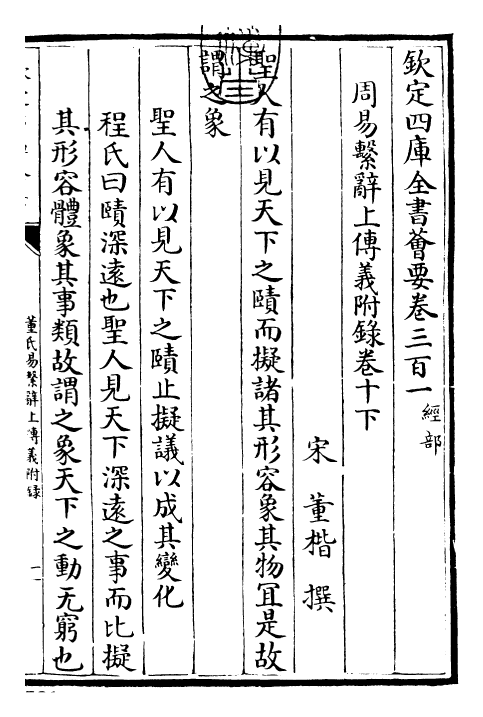 欽定四庫全書薈要卷三百一 經部
周易繫辭上傳義附錄卷十下
宋 董楷 撰
聖人有以見天下之賾而擬諸其形容象其物冝是故
謂之象
聖人有以見天下之賾止擬議以成其變化
程氏曰賾深遠也聖人見天下深遠之事而比擬
其形容體象其事類故謂之象天下之動无窮也
董氏易繫辭上傳義附錄
一